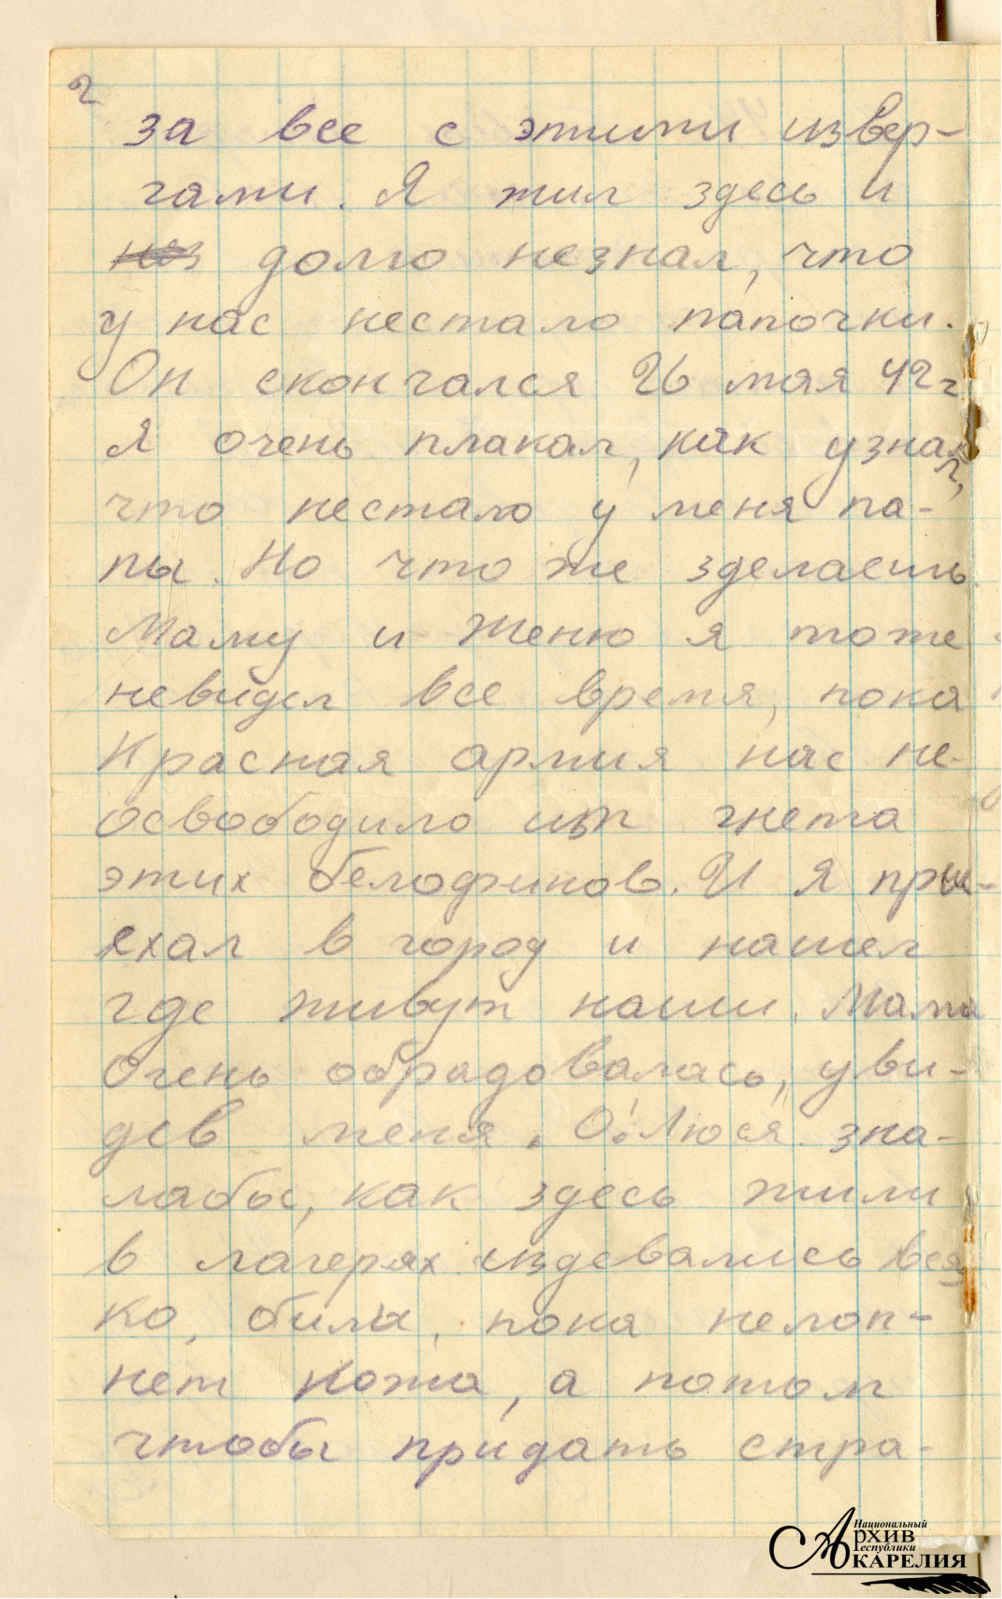 2
за все с этими извер-
гами. Я жил здесь и
долго незнал, что
у нас нестало папочки.
Он скончался 26 мая 42г
Я очень плакал, как узнал,
что нестало у меня па-
пы. Но что же зделаешь
Маму и Женю я тоже
невидел все время, пока
Красная армия нас не-
освободило из гнета
этих белофинов. И я при-
ехал в город и нашел
где живут наши. Мама
очень обрадовалась, уви-
дев меня. О! Люся зна-
лабы, как здесь жили
в лагерях издевались вся
ко, били, пока нелоп-
нет кожа, а потом
чтобы придать стра-
Национальный
Архив
Республики
Карелия